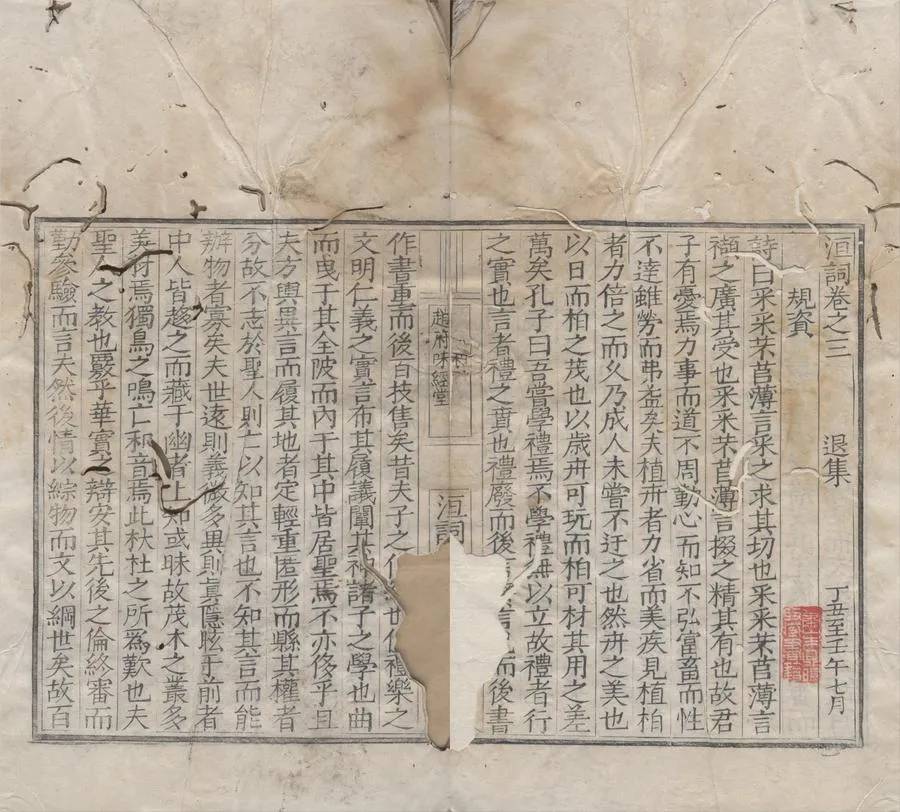 洹詞卷之三 退集 丁丑至壬午七月
規資
詩曰采采芣苢薄言采之求其切也采采芣苢薄言
襭之廣其受也采采芣苢薄言掇之精其有也故君
子有憂焉力事而道不周動心而知不弘富畜而性
不達雖勞而弗益矣夫植卉者力省而美疾見植柏
者力倍之而久乃成人未嘗不迂之也然卉之美也
以日而柏之茂也以歲卉可玩而柏可材其用之差
萬矣孔子曰吾嘗學禮焉不學禮無以立故禮者行
之實也言者禮之賁也禮廢而後而後書
趙府味經堂
洹詞
作書重而後百技售矣昔夫子之作也禮樂之
文明仁義之實言布其履議闡其神諸子之學也曲
而曳于其全陂而內干其中皆居聖焉不亦侈乎且
夫方輿異言而履其地者定輕重匿形而縣其權者
分故不志於聖人則亡以知其言也不知其言而能
辨物者寡矣夫世遠則義微多異則眞隱眩于前者
中人皆趨之而藏于幽者上知或昧故茂木之叢多
羙材焉獨鳥之鳴亡和音焉此杕杜之所爲歎也夫
聖人之教也覈乎華實之辯安其先後之倫終審而
勤參驗而言夫然後情以綜物而文以綱世矣故百